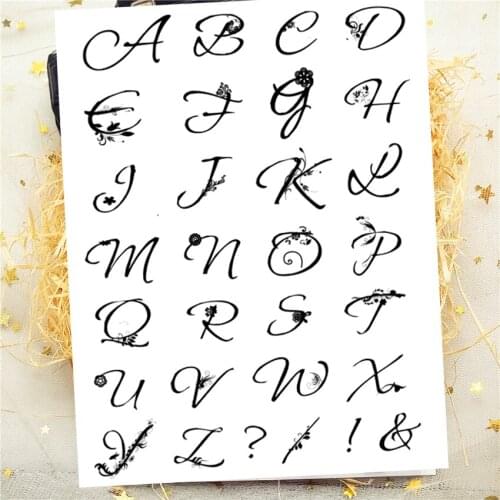 A B C D
E F G H
I J K L
M N O P
Q R S T
U V W X
Y Z ? / ! &